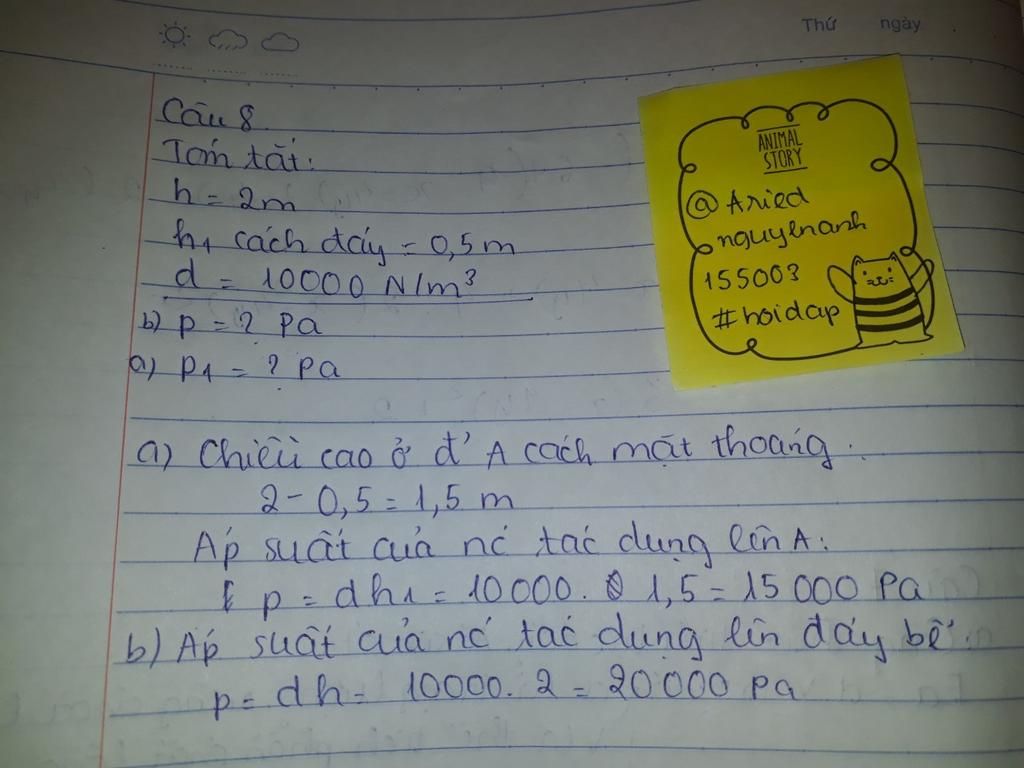 Thứ ngày
Câu 8
Tóm tắt:
h = 2m
h1 cách đáy = 0,5 m
d = 10000 N/m³
b) p = ? Pa
a) p1 = ? Pa
ANIMAL
STORY
@Aried
nguyenanh
155003
#hoidap
a) Chiều cao ở đ' A cách mặt thoáng:
2 - 0,5 = 1,5 m
Áp suất của nc' tác dụng lên A:
p = dh1 = 10000. 1,5 = 15 000 Pa
b) Áp suất của nc' tác dụng lên đáy bể:
p = dh = 10000. 2 = 20 000 Pa